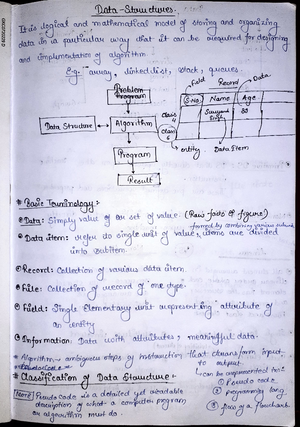 Data-Structures.
It is logical and mathematical model of storing and organizing
data in a particular way that it can be required for designing
and implementation of algorithm.
Eg:- array, linked list, stack, queues.
Field Record Data
Problem
Program
S.no Name Age
Data Structure Algorithm
Class
Class
entity Data Item
Program
Result
Basic Terminology:-
Data: Simply value or set of value. (Raw facts or figure)
Data item: Refer to single unit of value, items are divided
into subitem.
Record: Collection of various data item
File: Collection of record of one type.
Field: Single Elementary unit representing attribute of
an entity
Information: Data with attributes, meaningful data.
Algorithm:- ambiguous steps of instruction that transform input
to output.
can be implemented
Classification of Data Structure:-
① Pseudo code
② programming lang
③ flowchart
Note: Pseudo code is a detailed yet readable
description of what a computer program
or algorithm must do.